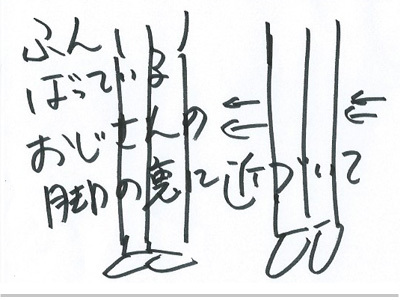 ふん
ばっている
おじさんの
脚の裏に近づいて